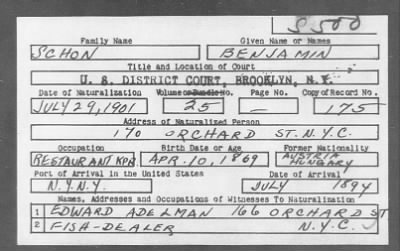 S 500
Family Name Given Name or Names
SCHON BENJAMIN
Title and Location of Court
U. S. DISTRICT COURT, BROOKLYN, N.Y.
Date of Naturalization Volume or Bundle No. Page No. Copy of Record No.
JULY 29, 1901 25 — 175
Address of Naturalized Person
170 ORCHARD ST. N.Y.C.
Occupation Birth Date or Age Former Nationality
RESTAURANT KPR. APR. 10, 1869 AUSTRIA HUNGARY
Port of Arrival in the United States Date of Arrival
N.Y. N.Y. JULY 1894
Names, Addresses and Occupations of Witnesses To Naturalization
1 EDWARD ADELMAN 166 ORCHARD ST
2 FISH-DEALER N.Y.C.